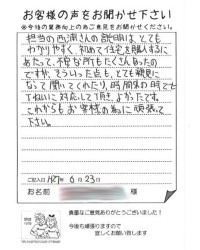 お客様の声をお聞かせ下さい
※今後の業務向上の為ご意見をお聞かせください。
担当の西浦さんの説明は、とても
わかりやすく、初めて住宅を購入するに
あたって、不安な所もたくさんあったの
ですが、そういった点も、とても親身に
なって聞いてくれたり、時間外の時でも
ていねいに対応して頂き、よかったです。
これからも、お客様の為に頑張って
下さい。
ご記入日 H27年 6月23日
お名前 様
貴重なご意見ありがとうございました!
今後も頑張りますので
宜しくお願い致します